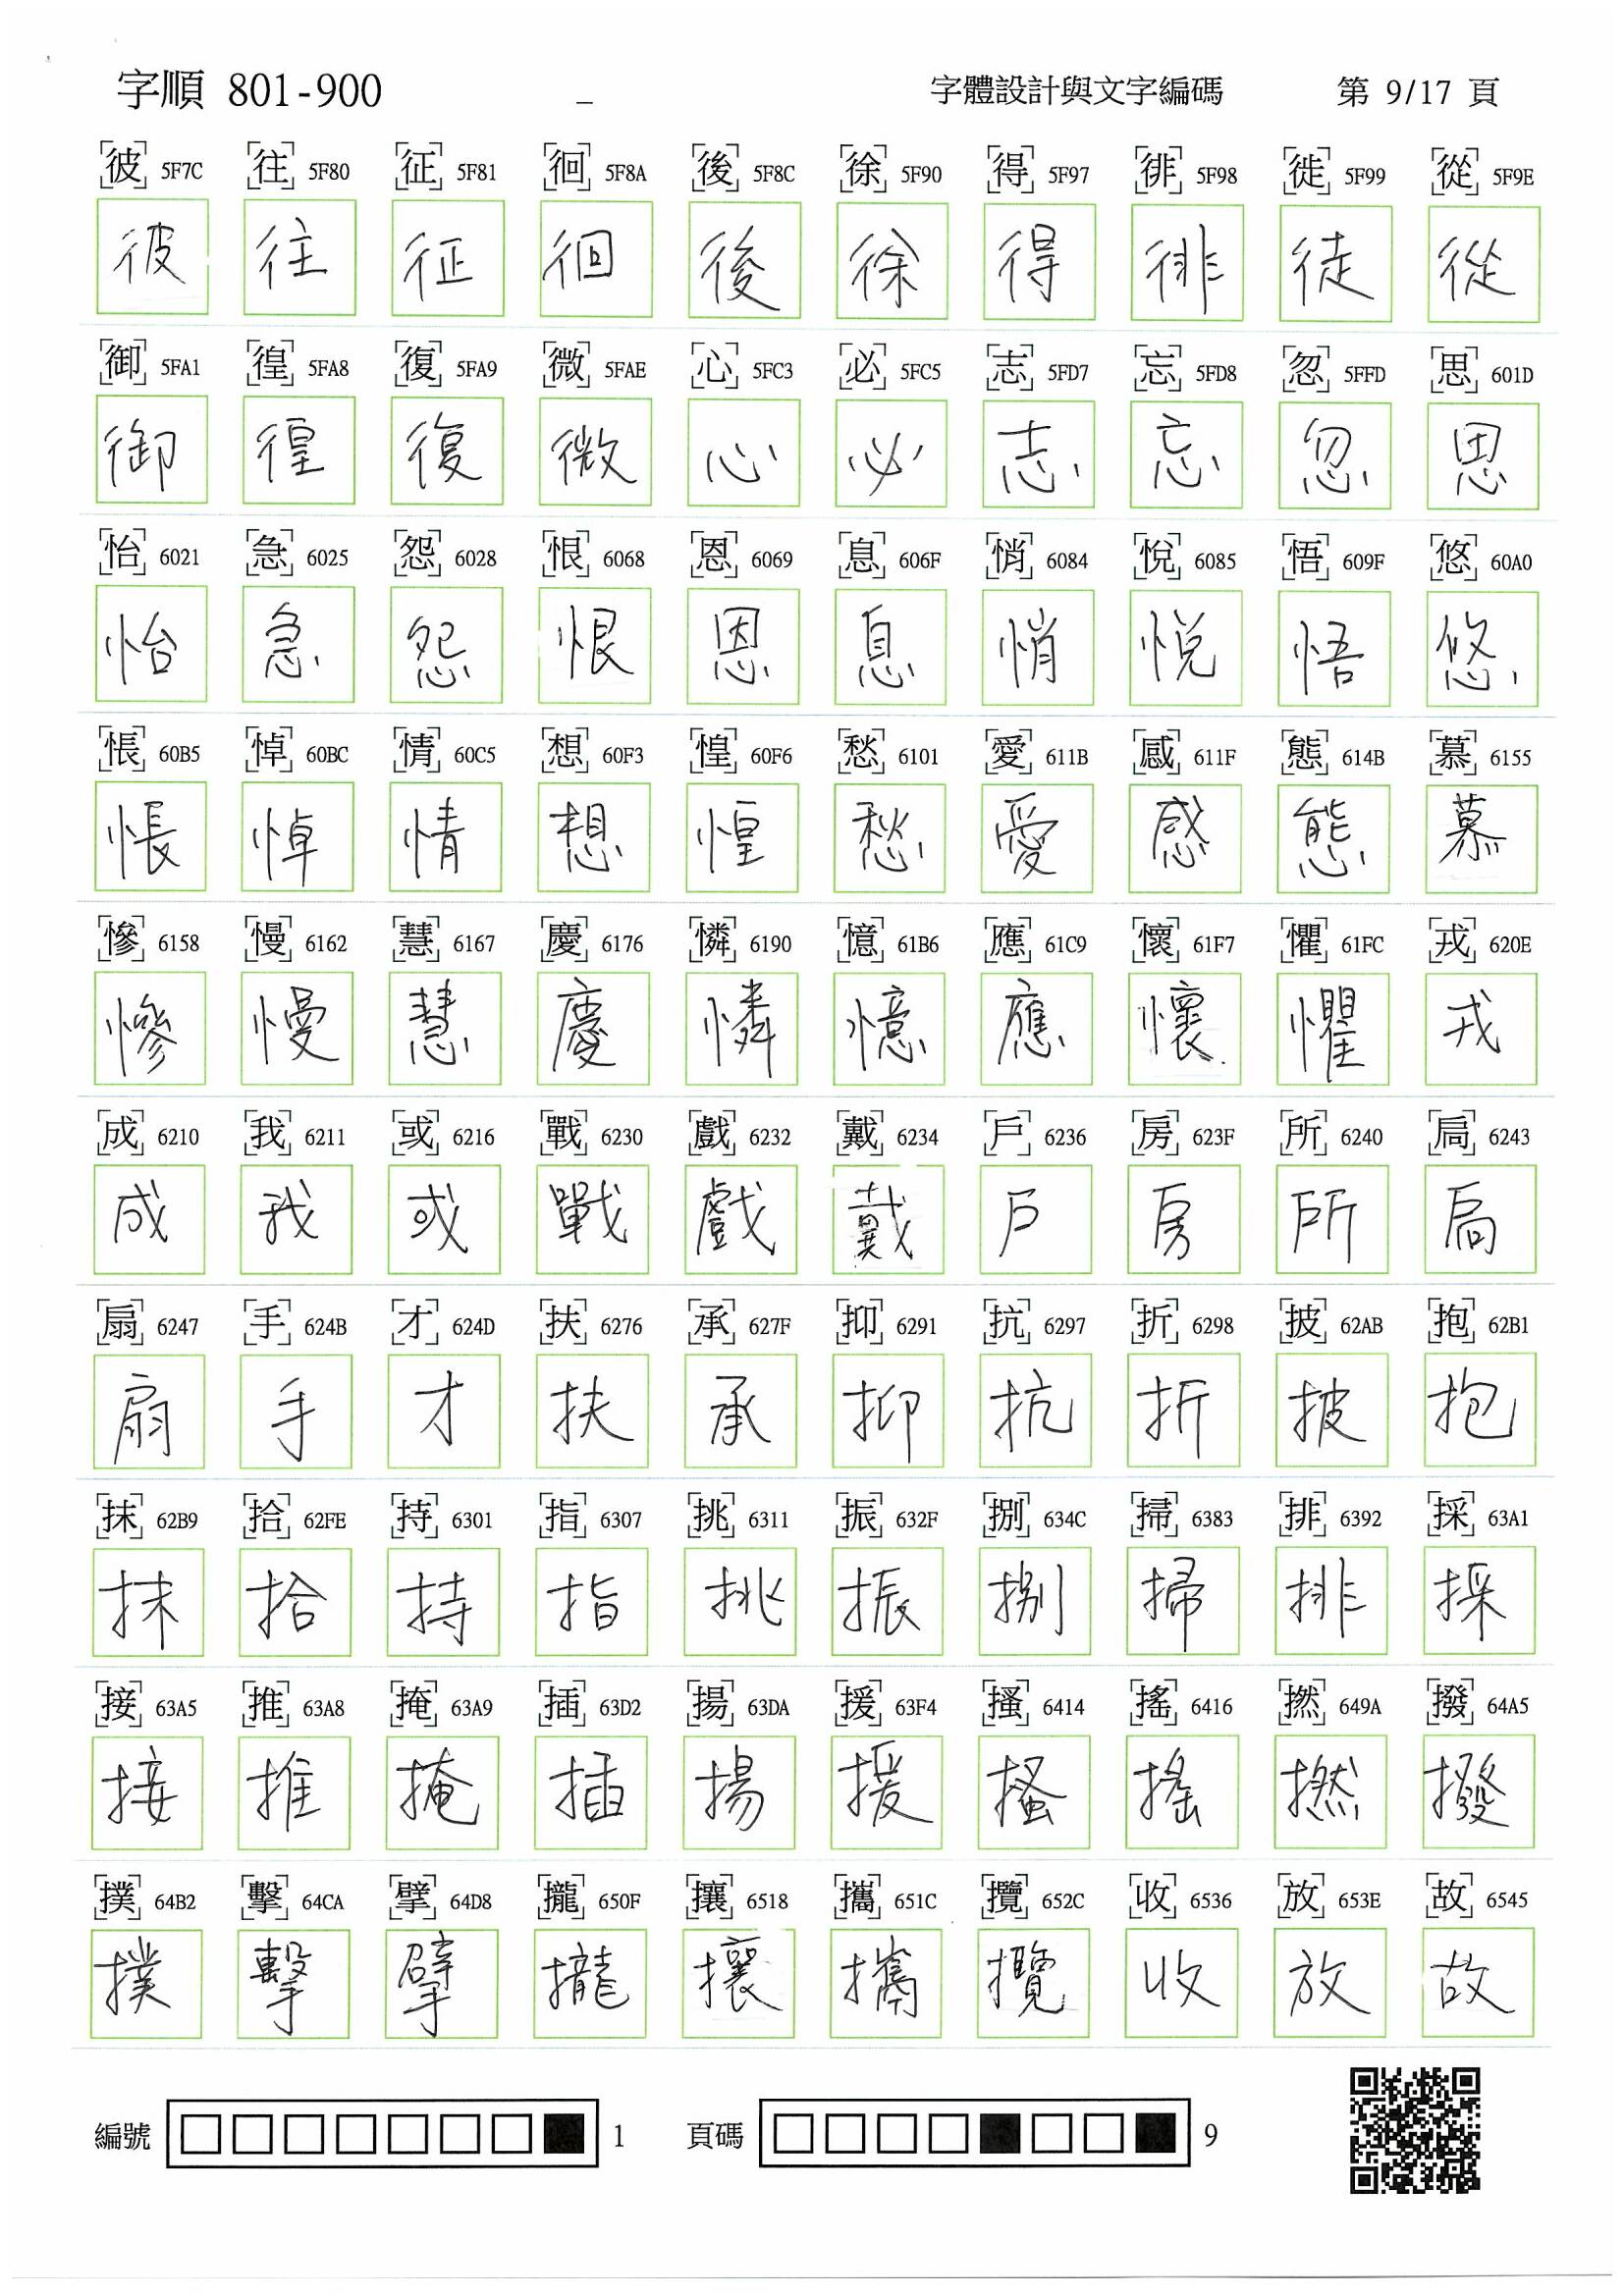 字順 801-900 _ 字體設計與文字編碼 第 9/17 頁
彼 5F7C 往 5F80 征 5F81 徊 5F8A 後 5F8C 徐 5F90 得 5F97 徘 5F98 徙 5F99 從 5F9E
彼 往 征 徊 後 徐 得 徘 徒 從
御 5FA1 徨 5FA8 復 5FA9 微 5FAE 心 5FC3 必 5FC5 志 5FD7 忘 5FD8 忽 5FFD 思 601D
御 徨 復 微 心 必 志 忘 忽 思
怡 6021 急 6025 怨 6028 恨 6068 恩 6069 息 606F 悄 6084 悅 6085 悟 609F 悠 60A0
怡 急 怨 恨 恩 息 悄 悅 悟 悠
悵 60B5 悼 60BC 情 60C5 想 60F3 惶 60F6 愁 6101 愛 611B 感 611F 態 614B 慕 6155
悵 悼 情 想 惶 愁 愛 感 態 慕
慘 6158 慢 6162 慧 6167 慶 6176 憐 6190 憶 61B6 應 61C9 懷 61F7 懼 61FC 戎 620E
慘 慢 慧 慶 憐 憶 應 懷 懼 戎
成 6210 我 6211 或 6216 戰 6230 戲 6232 戴 6234 戶 6236 房 623F 所 6240 扃 6243
成 我 或 戰 戲 戴 戶 房 所 扃
扇 6247 手 624B 才 624D 扶 6276 承 627F 抑 6291 抗 6297 折 6298 披 62AB 抱 62B1
扇 手 才 扶 承 抑 抗 折 披 抱
抹 62B9 拾 62FE 持 6301 指 6307 挑 6311 振 632F 捌 634C 掃 6383 排 6392 採 63A1
抹 拾 持 指 挑 振 捌 掃 排 採
接 63A5 推 63A8 掩 63A9 插 63D2 揚 63DA 援 63F4 搔 6414 搖 6416 撚 649A 撥 64A5
接 推 掩 插 揚 援 搔 搖 撚 撥
撲 64B2 擊 64CA 擘 64D8 攏 650F 攘 6518 攜 651C 攬 652C 收 6536 放 653E 故 6545
撲 擊 擘 攏 攘 攜 攬 收 放 故
編號 1 頁碼 9